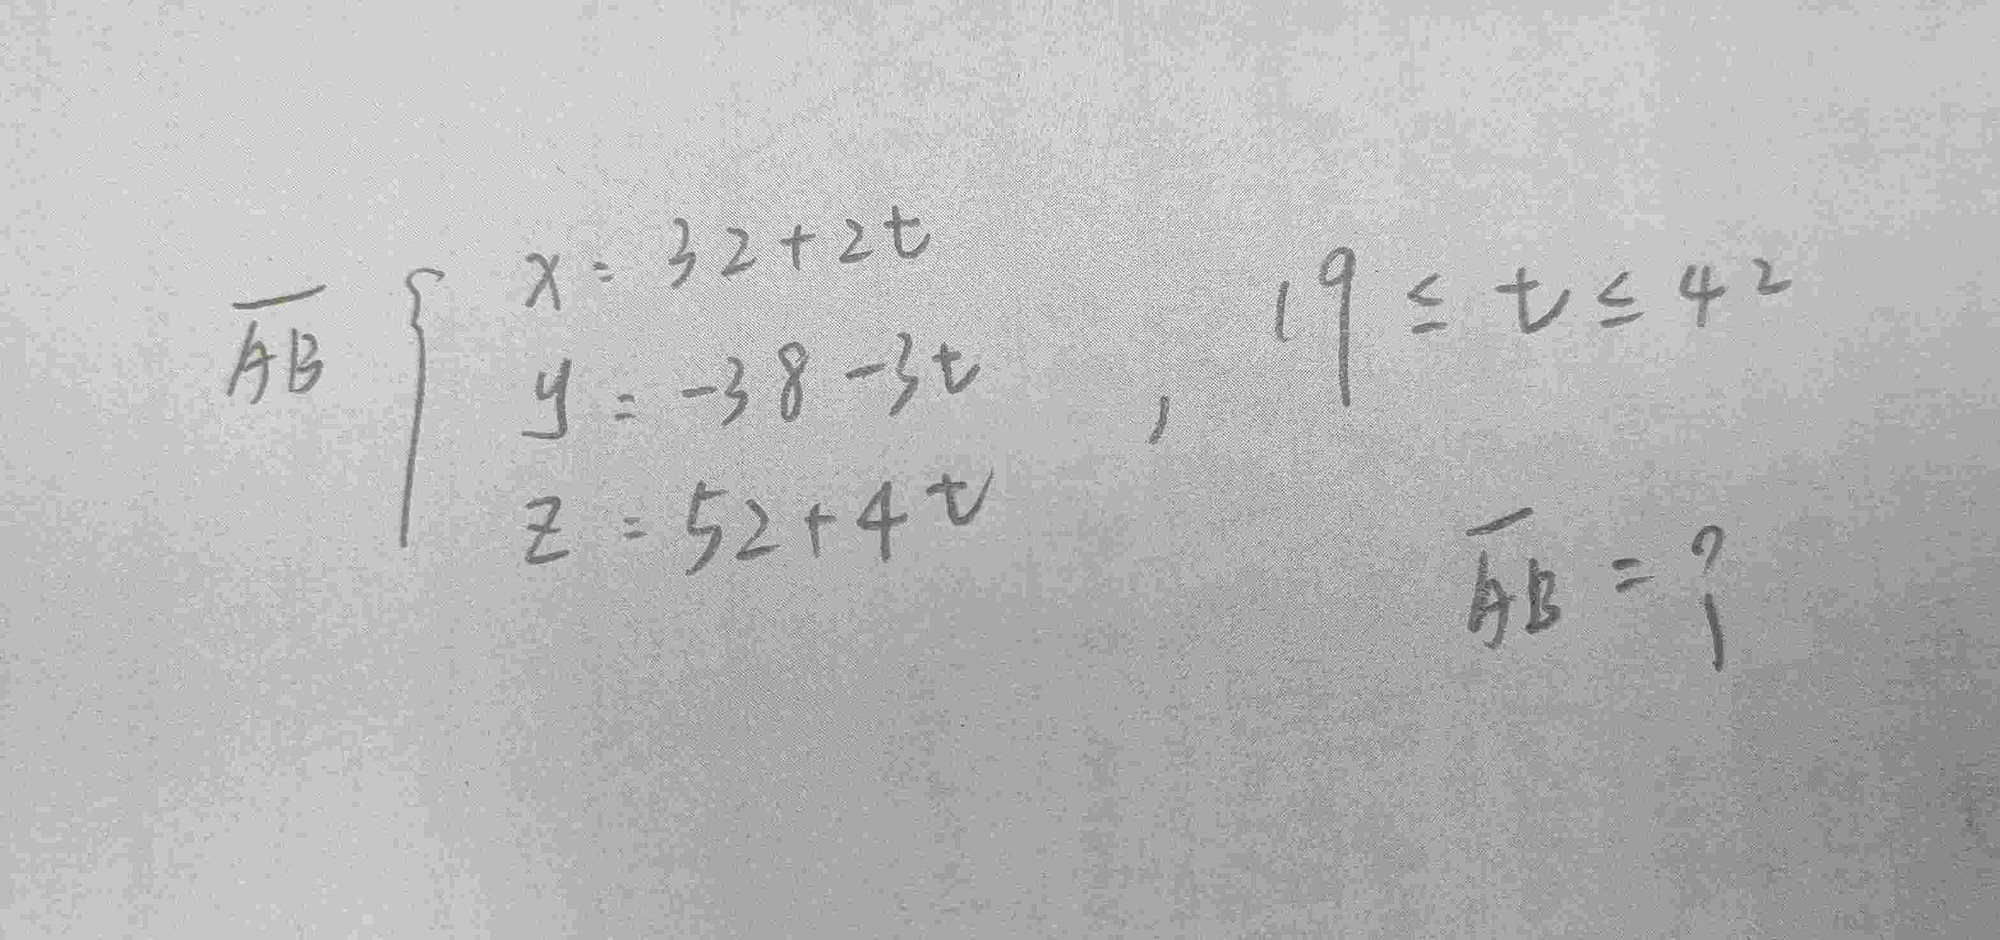 x = 32+2t
y = -38-3t
z = 52+4t
\overline{AB} { , 19 ≤ t ≤ 42
\overline{AB} = ?